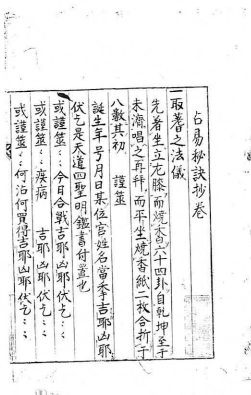 占易秘訣抄卷
一取蓍之法儀
先着坐立左膝而燒香六十四卦自乾坤至于
未濟唱之再拜而平坐燒香紙一枚合折于
八數其初 謹筮
誕生年号月日某位官姓名當季吉耶凶耶
伏乞是天道四聖明鑑書付畫也
或謹筮〻今日合戰吉耶凶耶伏乞〻
或謹筮〻疾病 吉耶凶耶伏乞〻
或謹筮〻何沽何買得吉耶凶耶伏乞〻